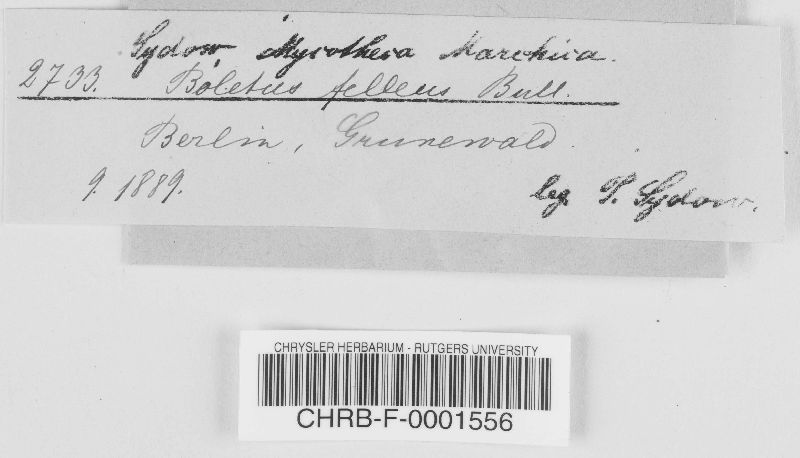 Sydow Mycotheca Marchica.
2733. Boletus felleus Bull.
Berlin, Grunewald.
9. 1889. leg. P. Sydow.
CHRYSLER HERBARIUM - RUTGERS UNIVERSITY
CHRB-F-0001556